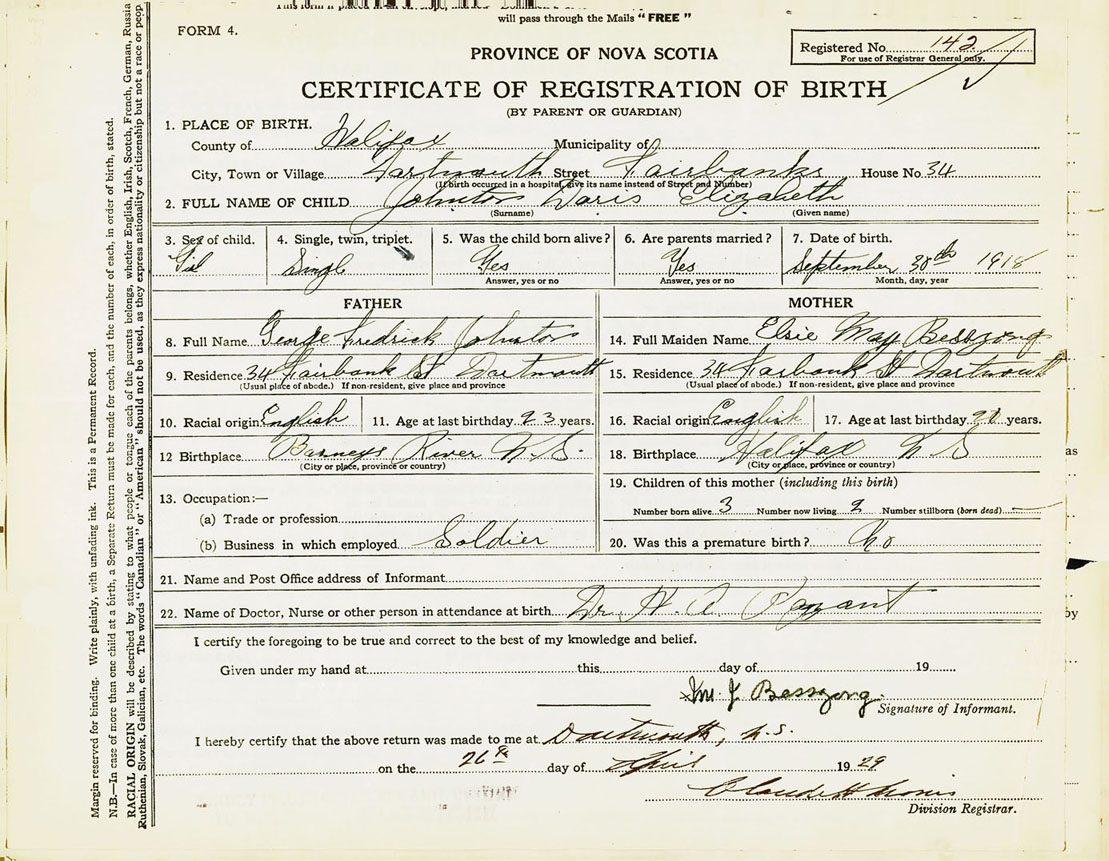 will pass through the Mails "FREE"
FORM 4.
Registered No. 142
For use of Registrar General only.
PROVINCE OF NOVA SCOTIA
CERTIFICATE OF REGISTRATION OF BIRTH
(BY PARENT OR GUARDIAN)
1. PLACE OF BIRTH.
County of Halifax Municipality of
City, Town or Village Dartmouth Street Fairbanks House No. 34
(If birth occurred in a hospital, give its name instead of Street and Number)
2. FULL NAME OF CHILD Johnston Doris Elizabeth
(Surname) (Given name)
3. Sex of child. 4. Single, twin, triplet. 5. Was the child born alive? 6. Are parents married? 7. Date of birth.
Girl Single Yes Yes September 30th 1918
Answer, yes or no Answer, yes or no Month, day, year
FATHER MOTHER
8. Full Name George Fredrick Johnston 14. Full Maiden Name Elsie May Besszong
9. Residence 34 Fairbank St Dartmouth 15. Residence 34 Fairbank St Dartmouth
(Usual place of abode.) If non-resident, give place and province (Usual place of abode.) If non-resident, give place and province
10. Racial origin English 11. Age at last birthday 23 years. 16. Racial origin English 17. Age at last birthday years.
12 Birthplace Barneys River N.S. 18. Birthplace Halifax N S
(City or place, province or country) (City or place, province or country)
19. Children of this mother (including this birth)
13. Occupation:—
(a) Trade or profession
Number born alive 3 Number now living 2 Number stillborn (born dead) —
(b) Business in which employed Soldier 20. Was this a premature birth? No
21. Name and Post Office address of Informant
22. Name of Doctor, Nurse or other person in attendance at birth Dr. Payzant
I certify the foregoing to be true and correct to the best of my knowledge and belief.
Given under my hand at this day of 19
J Besszong.
Signature of Informant.
I hereby certify that the above return was made to me at Dartmouth, N.S.
on the 26th day of April 1929
Claude H Morris
Division Registrar.
Margin reserved for binding. Write plainly, with unfading ink. This is a Permanent Record.
N.B.—In case of more than one child at a birth, a Separate Return must be made for each, and the number of each, in order of birth, stated.
RACIAL ORIGIN will be described by stating to what people or tongue each of the parents belongs, whether English, Irish, Scotch, French, German, Russia
Ruthenian, Slovak, Galician, etc. The words "Canadian" or "American" should not be used, as they express nationality or citizenship but not a race or peop
as
by